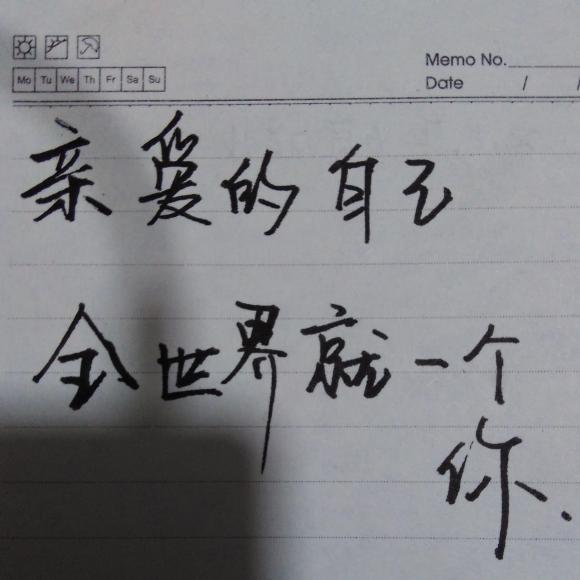 Memo No.
Mo Tu We Th Fr Sa Su
Date / /
亲爱的自己
全世界就一个
你.